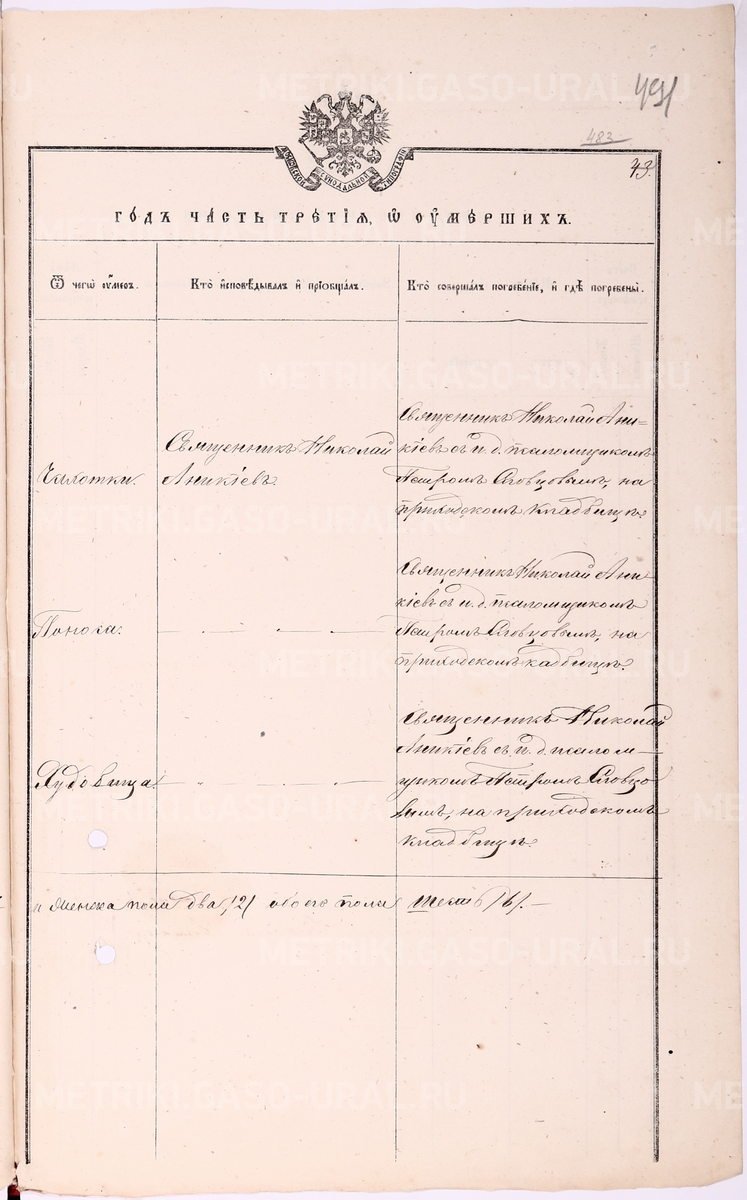 491
483
43.
МОСКОВСКОЙ СѴНОДАЛЬНОЙ ТИПОГРАФІИ
ГОДЪ ЧАСТЬ ТРЕТІЯ, Ѿ ОУМЕРШИХЪ.
Ѿ чегѡ оумеръ.
Кто исповѣдывалъ и пріобщалъ.
Кто совершалъ погребеніе, и гдѣ погребены.
Чахотки.
Священникъ Николай
Аникіевъ.
Священникъ Николай Ани-
кіевъ съ и. д. псаломщикомъ
Петромъ Словцовымъ, на
приходскомъ кладбищѣ.
Поноса.
Священникъ Николай Ани-
кіевъ съ и. д. псаломщикомъ
Петромъ Словцовымъ, на
приходскомъ кадбищѣ.
Худобища
Священникъ Николай
Аникіевъ съ и. д. псалом-
щикомъ Петромъ Словцо
вымъ, на приходскомъ
кладбищѣ.
и женска пола два /2/ обоего пола шесть /6/. —
METRIKI.GASO-URAL.RU